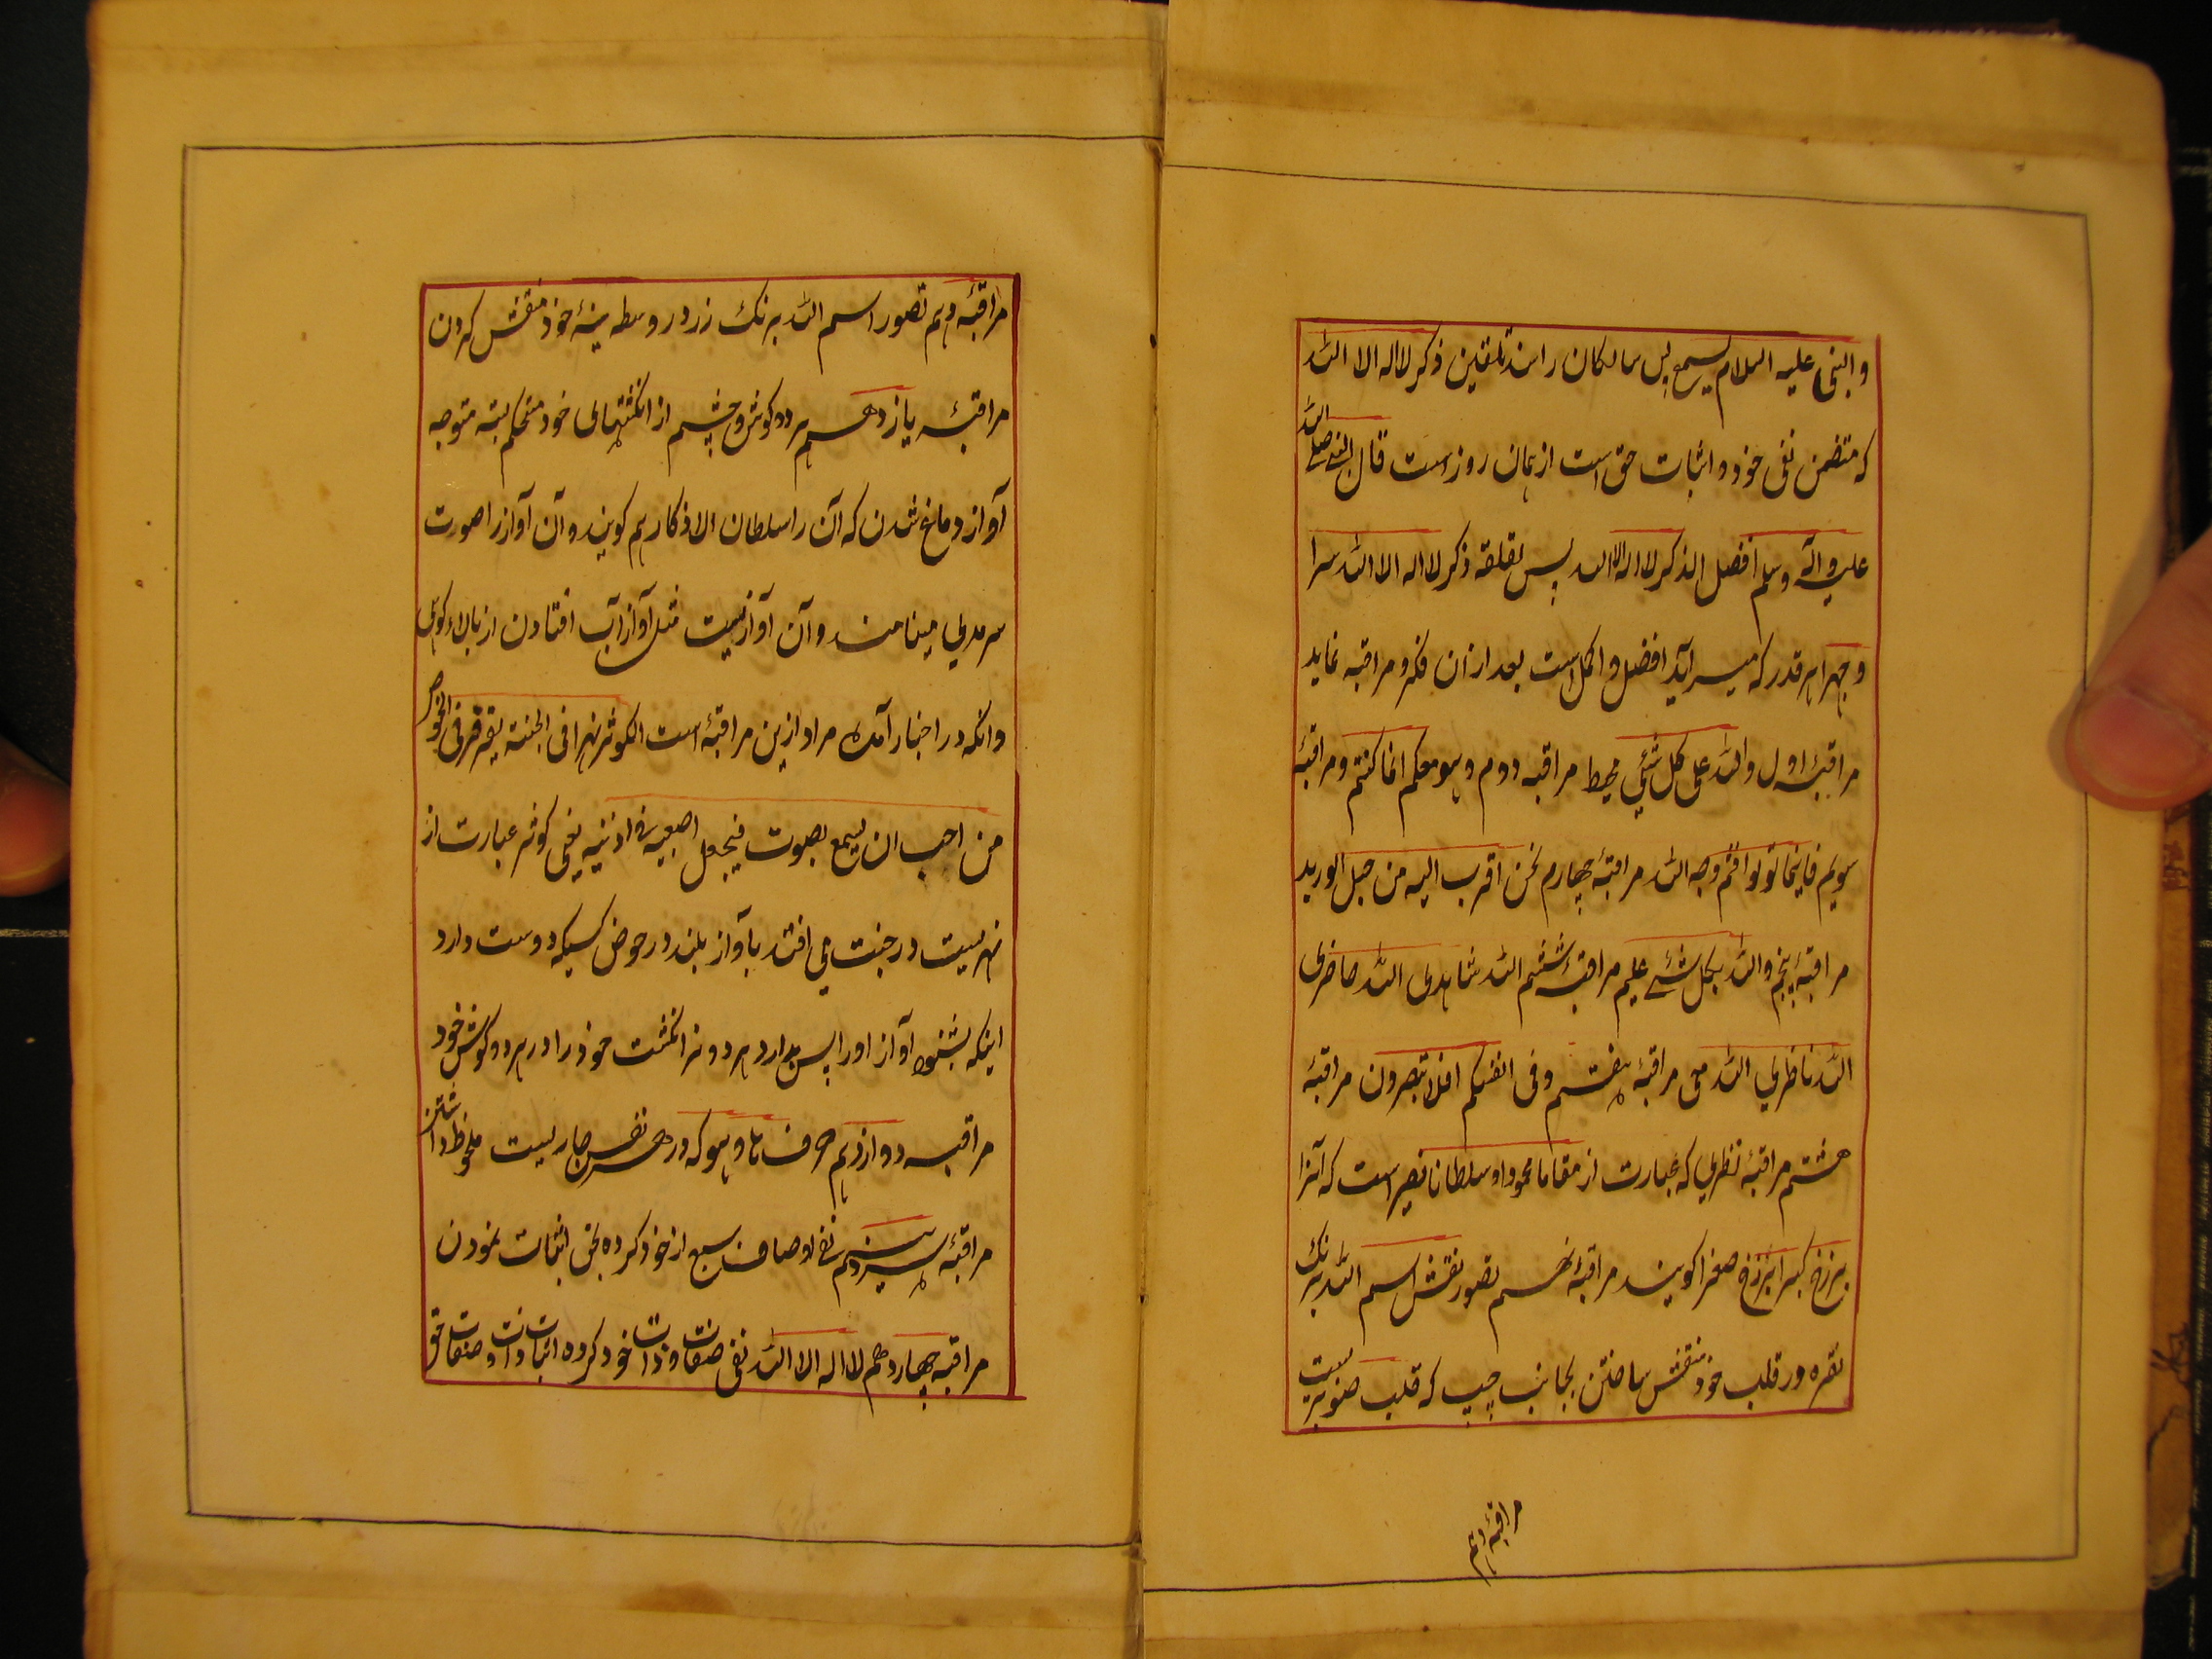 والنبی علیه السلام یسمع پس سالکان را سند تلقین ذکر لا اله الا الله
که متضمن نفی خود و اثبات حق است از همان روز است قال النبی صلی الله
علیه و آله وسلم افضل الذکر لا اله الا الله پس بقلقه ذکر لا اله الا الله سرا
و جهرا هر قدر که میسر آید افضل و اکمل است بعد ازان فکر و مراقبه نماید
مراقبهٔ اول والله علی کل شئی محیط مراقبه دوم وهو معکم انما کنتم و مراقبهٔ
سویم فاینما تولوا فثم وجه الله مراقبهٔ چهارم نحن اقرب الیه من حبل الورید
مراقبهٔ پنجم والله بکل شئے علیم مراقبهٔ ششم الله شاهدی الله حاضری
الله ناظری الله معی مراقبهٔ هفتم وفی انفسکم افلا تبصرون مراقبهٔ
هشتم مراقبهٔ نظری که عبارت از مقاما محمودا و سلطانا نصیرا است که آنرا
برزخ کبرا برزخ صغرا کویند مراقبهٔ نهم تصور نقش اسم الله برنک
نقره در قلب خود منقش ساختن بجانب چپ که قلب صنوبریست
مراقبهٔ دهم
مراقبهٔ دهم تصور اسم الله برنک زرد در وسطه سینهٔ خود منقش کردن
مراقبهٔ یازدهم هر دو کوش و چشم از انکشتهای خود مستحکم بسته متوجه
آواز دماغ شدن که آن را سلطان الاذکار هم کویند و آن آواز را صورت
سرمدی مینامند و آن آوازیست مثل آواز آب افتادن از بالاء کوهی
وانکه در اخبار آمده مراد ازین مراقبهٔ است الکوثر نهرا فی الجنة یقرقر فی الحوض
من احب ان یسمع بصوت فیجعل اصبعیه فے اذنیه یعنی کوثر عبارت از
نهریست در جنت می افتد بآواز بلند در حوض کسیکه دوست دارد
اینکه بشنود آواز او را پس بدارد هر دو نر انکشت خود را در هر دو کوش خود
مراقبه دوازدهم حرف ها و هو که در هر نفس جاریست ملحوظ داشتن
مراقبهٔ سیزدهم نفے اوصاف سبع از خود کرده بحق اثبات نمودن
مراقبه چهاردهم لا اله الا الله نفی صفات و ذات خود کرده اثبات ذات و صفات حق